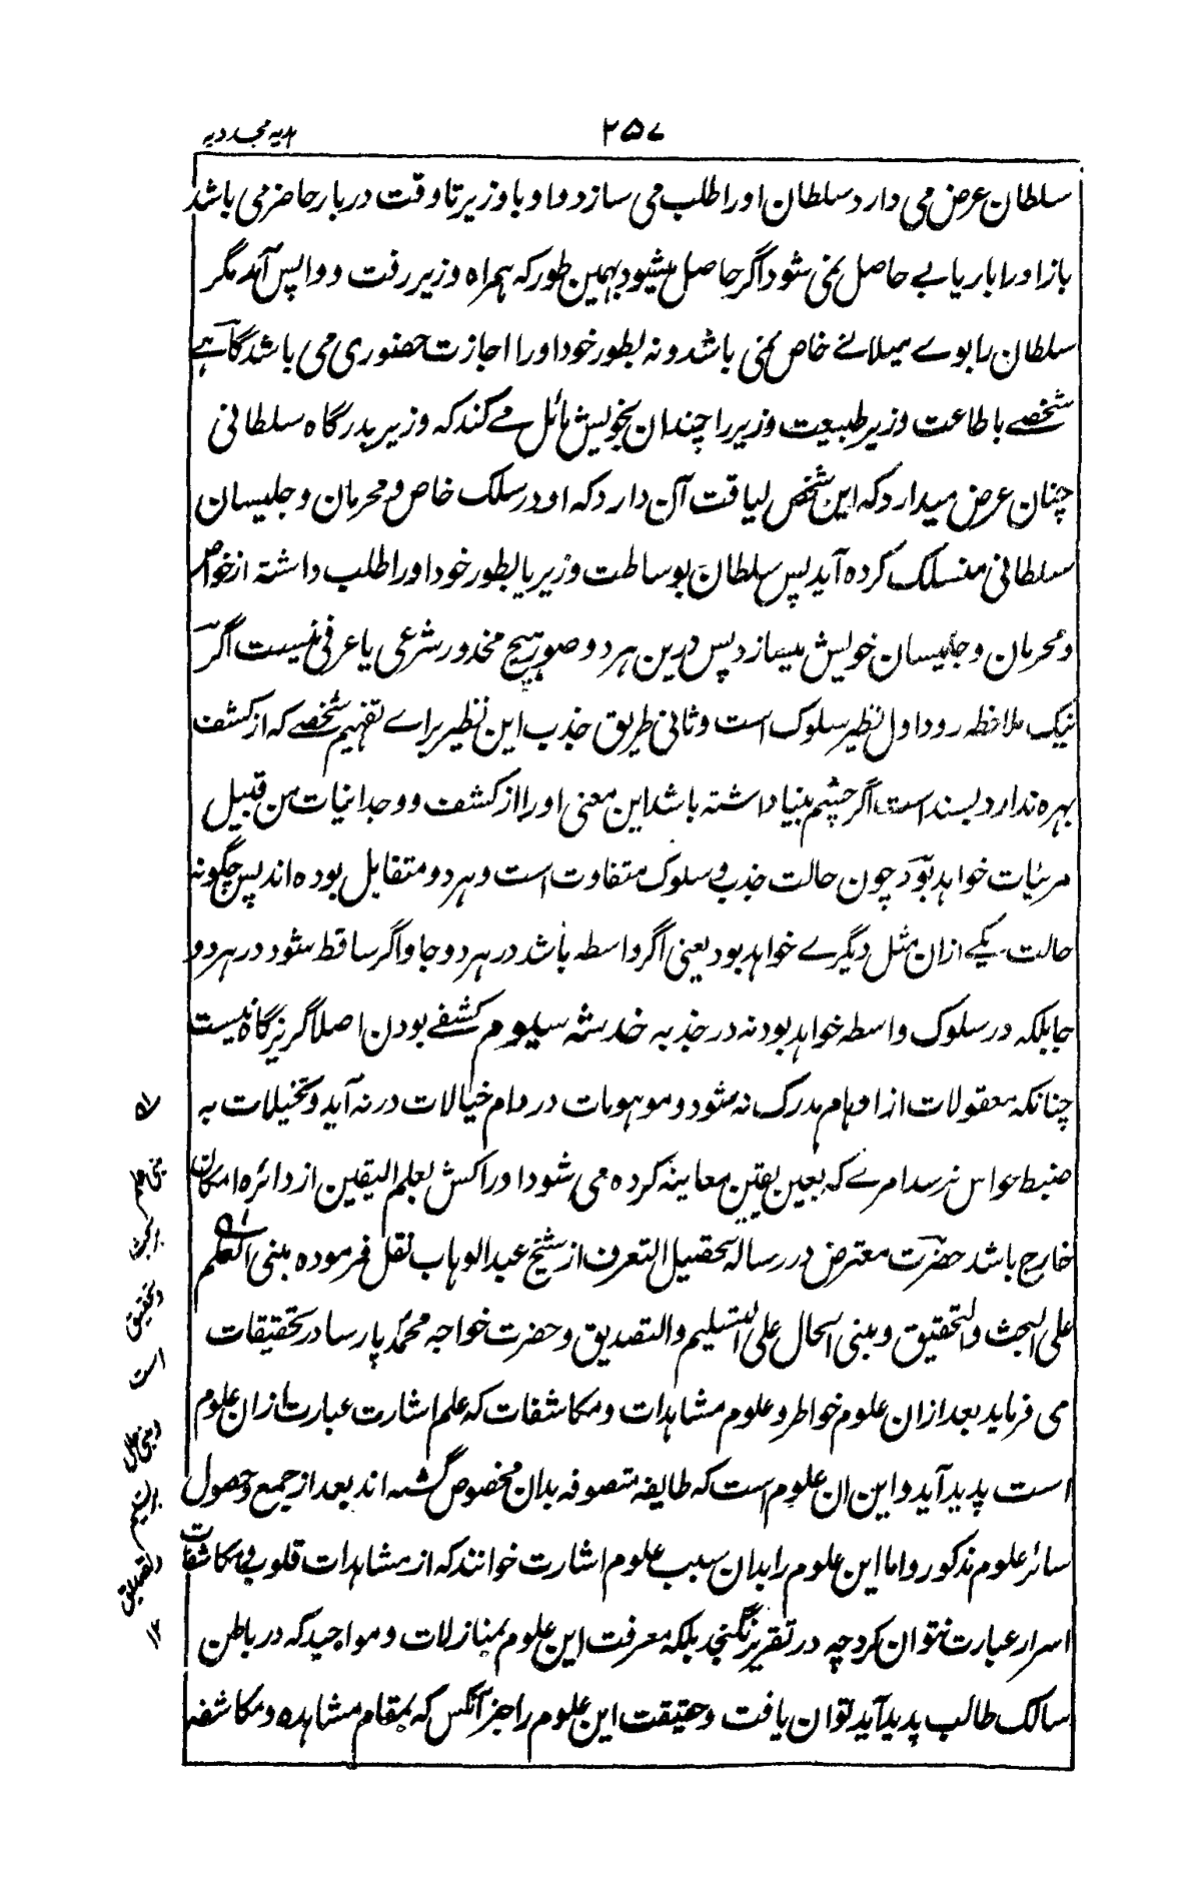 ۲۵۷
یه مجددیه
سلطان عرض می دارد سلطان اورا طلب می سازد و او با وزیر تا وقت دربار حاضر می باشد
باز اورا باریابے حاصل نمی شود اگر حاصل میشود بهمین طور که همراه وزیر رفت و واپس آمد مگر
سلطان را بوے میلانے خاص نمی باشد و نه بطور خود اورا اجازت حضوری می باشد گاهے
شخصے باطاعت وزیر طبیعت وزیر را چندان بخویش مائل مے کند که وزیر بدرگاه سلطانی
چنان عرض میدارد که این شخص لیاقت آن دارد که او در سلک خاص و محرمان و جلیسان
سلطانی منسلک کرده آید پس سلطان بوساطت وزیر یا بطور خود اورا طلب داشته از خواص
و محرمان و جلیسان خویش میسازد پس درین هر دو صور هیچ محذور شرعی یا عرفی نیست اگر
نیک ملاحظه رود اول نظیر سلوک است و ثانی طریق جذب این نظیر براے تفهیم شخصے که از کشف
بهره ندارد بسند است اگر چشم بینا داشته باشد این معنی اورا از کشف و وجدانیات من قبیل
مرئیات خواهد بود چون حالت جذب و سلوک متفاوت است و هر دو متقابل بوده اند پس چگونه
حالت یکے ازان مثل دیگرے خواهد بود یعنی اگر واسطه باشد در هر دو جا و اگر ساقط شود در هر دو
جا بلکه در سلوک واسطه خواهد بود نه در جذبه خدشه سیوم کشفے بودن اصلا گریزگاه نیست
چنانکه معقولات از اوهام مدرک نه شود و موهومات در دام خیالات در نه آید و تخیلات به
ضبط حواس نرسد امرے که بعین یقین معاینه کرده می شود اوراکش بعلم الیقین از دائره امکان
خارج باشد حضرت معترض در رساله تحصیل التعرف از شیخ عبدالوهاب نقل فرموده مبنی العلم
علی البحث والتحقیق و مبنی الحال علی التسلیم والتصدیق و حضرت خواجه محمد پارسا در تحقیقات
می فرماید بعد ازان علوم خواطر و علوم مشاهدات و مکاشفات که علم اشارت عبارت ازان علوم
است پدید آید و این ان علوم است که طایفه متصوفه بدان مخصوص گشته اند بعد از جمع و حصول
سائر علوم مذکور و اما این علوم را بدان سبب علوم اشارت خوانند که از مشاهدات قلوب و مکاشفات
اسرار عبارت نتوان کرد چه در تقریر نگنجد بلکه معرفت این علوم بمنازلات و مواجید که در باطن
سالک طالب پدید آید توان یافت و حقیقت این علوم را جز آنکس که بمقام مشاهده و مکاشفه
مبنی علم
بر بحث
و تحقیق
است
و مبنی حال
بر تسلیم
و تصدیق
۱۲